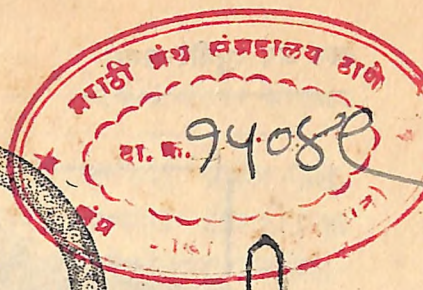 मराठी ग्रंथ संग्रहालय ठाणे
दा. क्र. १५०४९